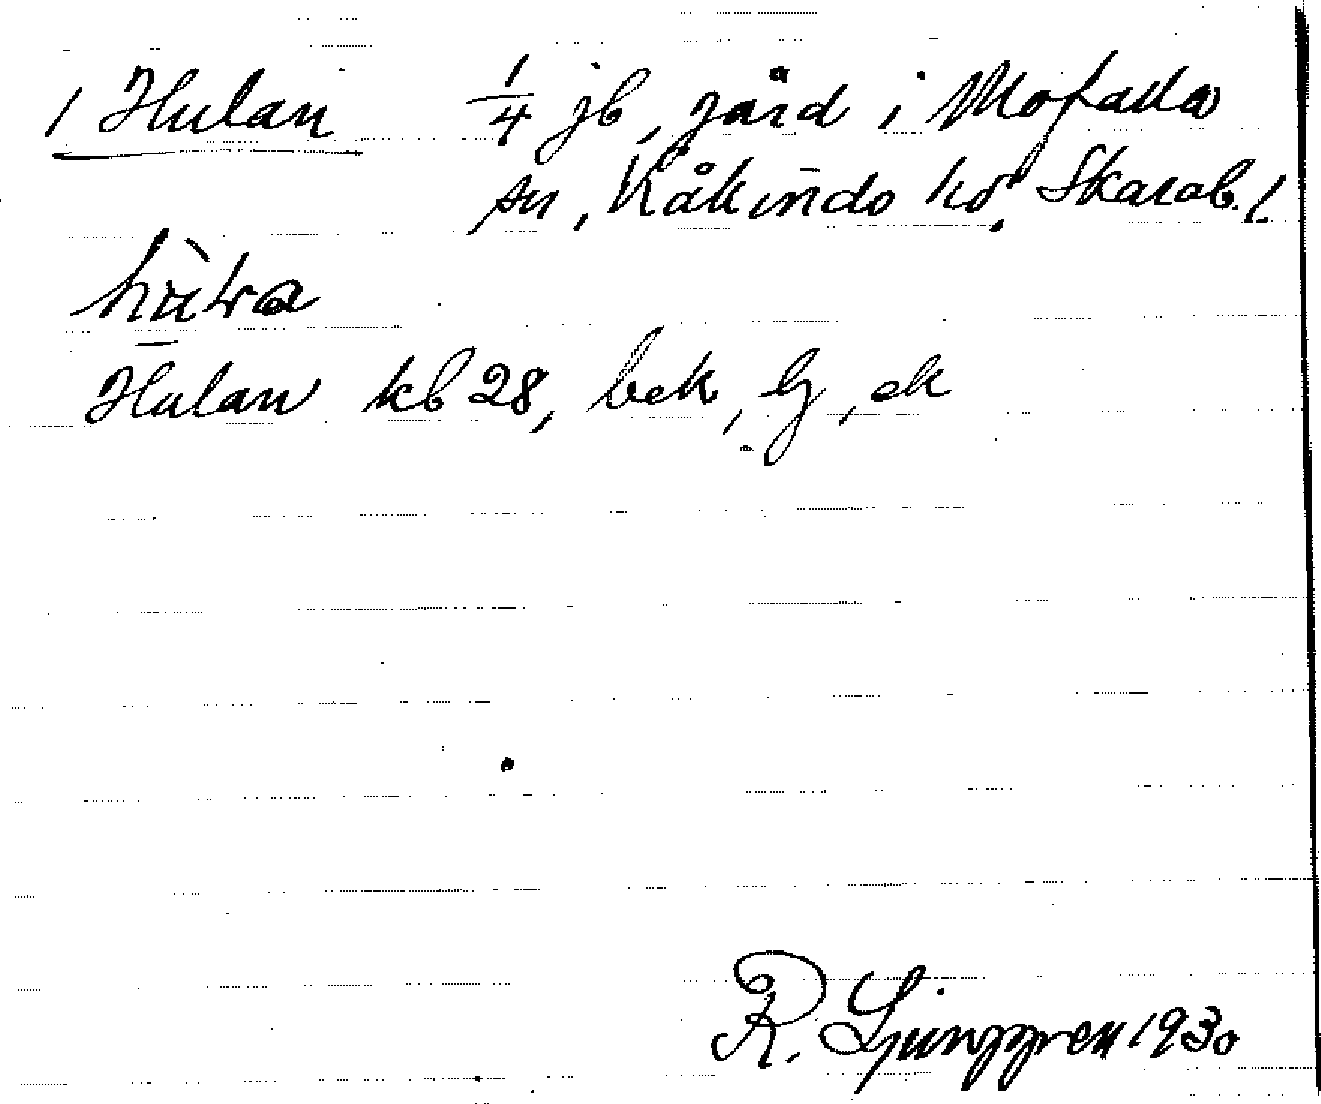 1 Hulan 1/4 jb, gård i Mofalla
sn, Kåkinds hd. Skarab. l
hùlra
Hulan kb 28, bek, lj, ek
R. Ljunggren 1930